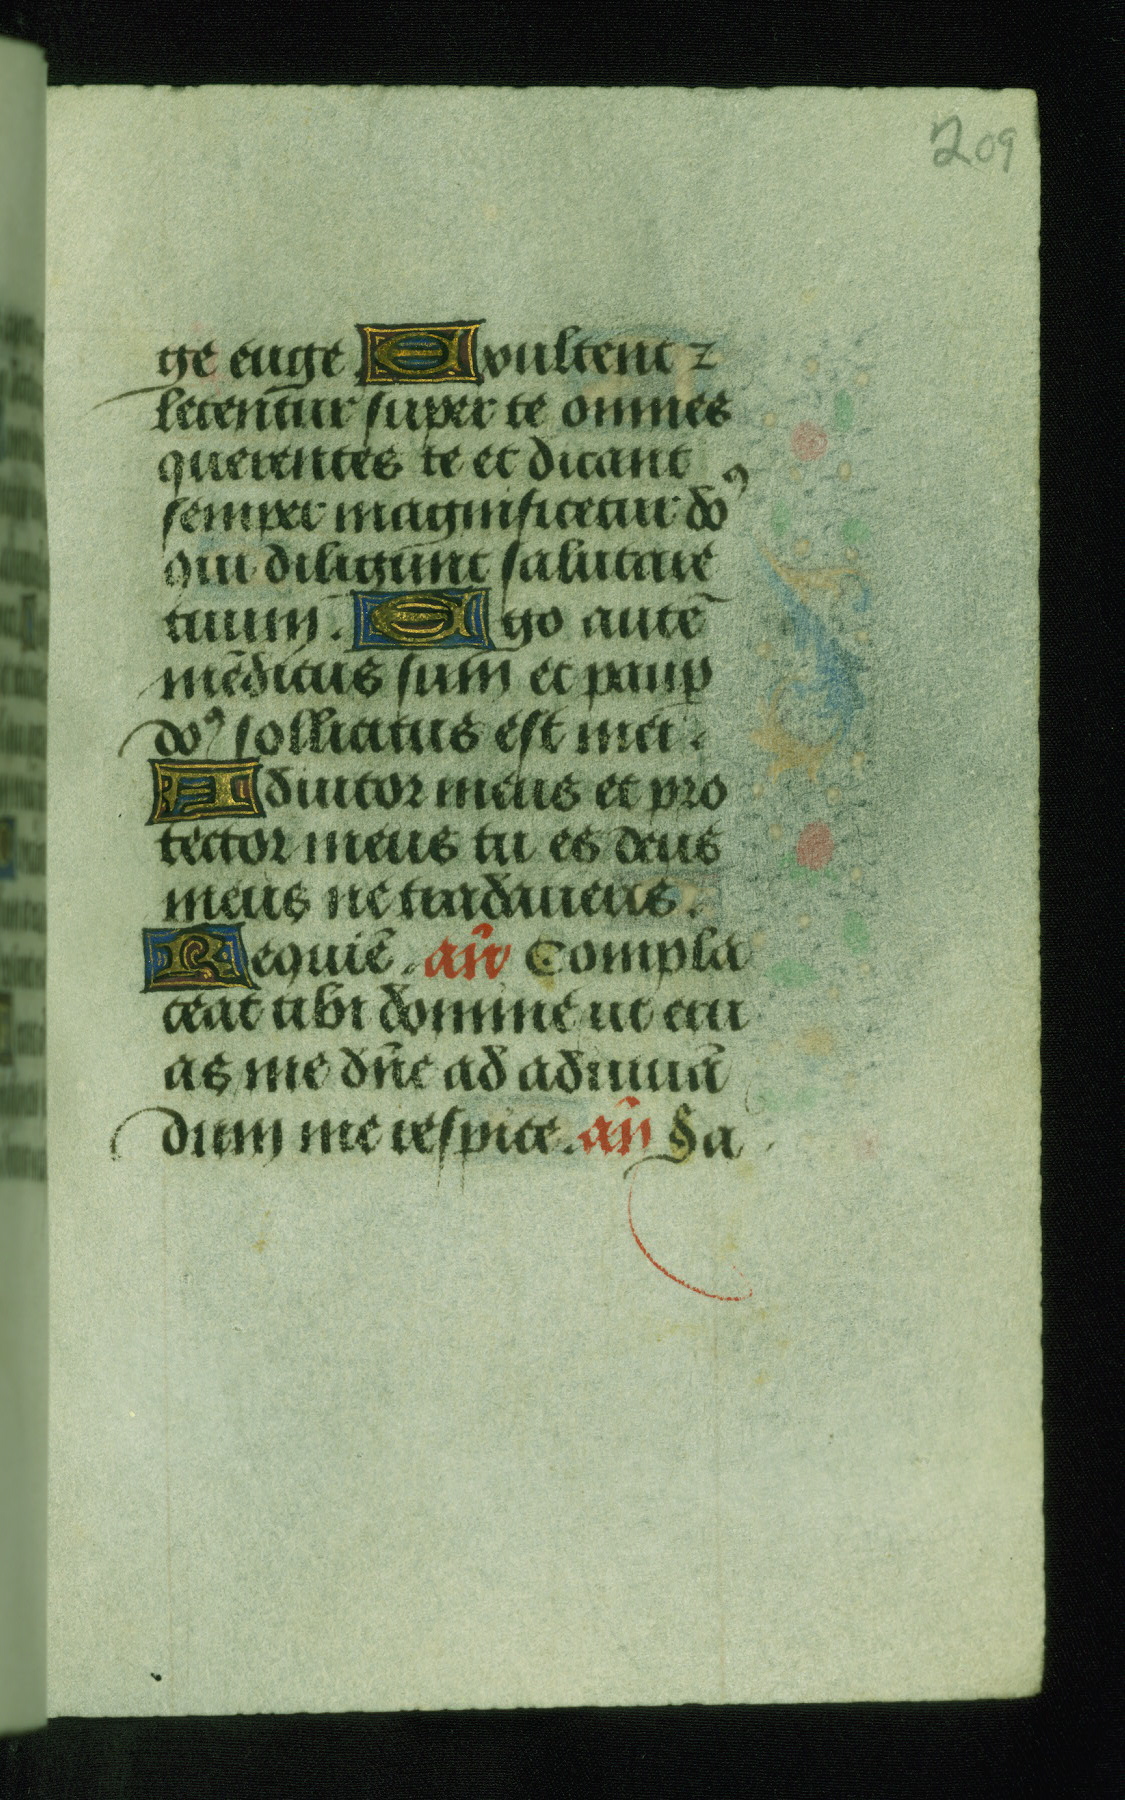 209
ge euge Exultent ⁊
letent᷑ur super te omnes
querentes te et dicant
semper magnificetur do⁹
qui diligunt salutare
tuum. Ego autē
mēdicus sum et paup
do⁹ sollicitus est mei.
Adiutor meus et pro
tector meus tu es deus
meus ne tardaueris.
Requiē. an̄ Compla
ceat tibi domine ut eru
as me dn̄e ad adiuuā
dum me respice. an̄ Sa